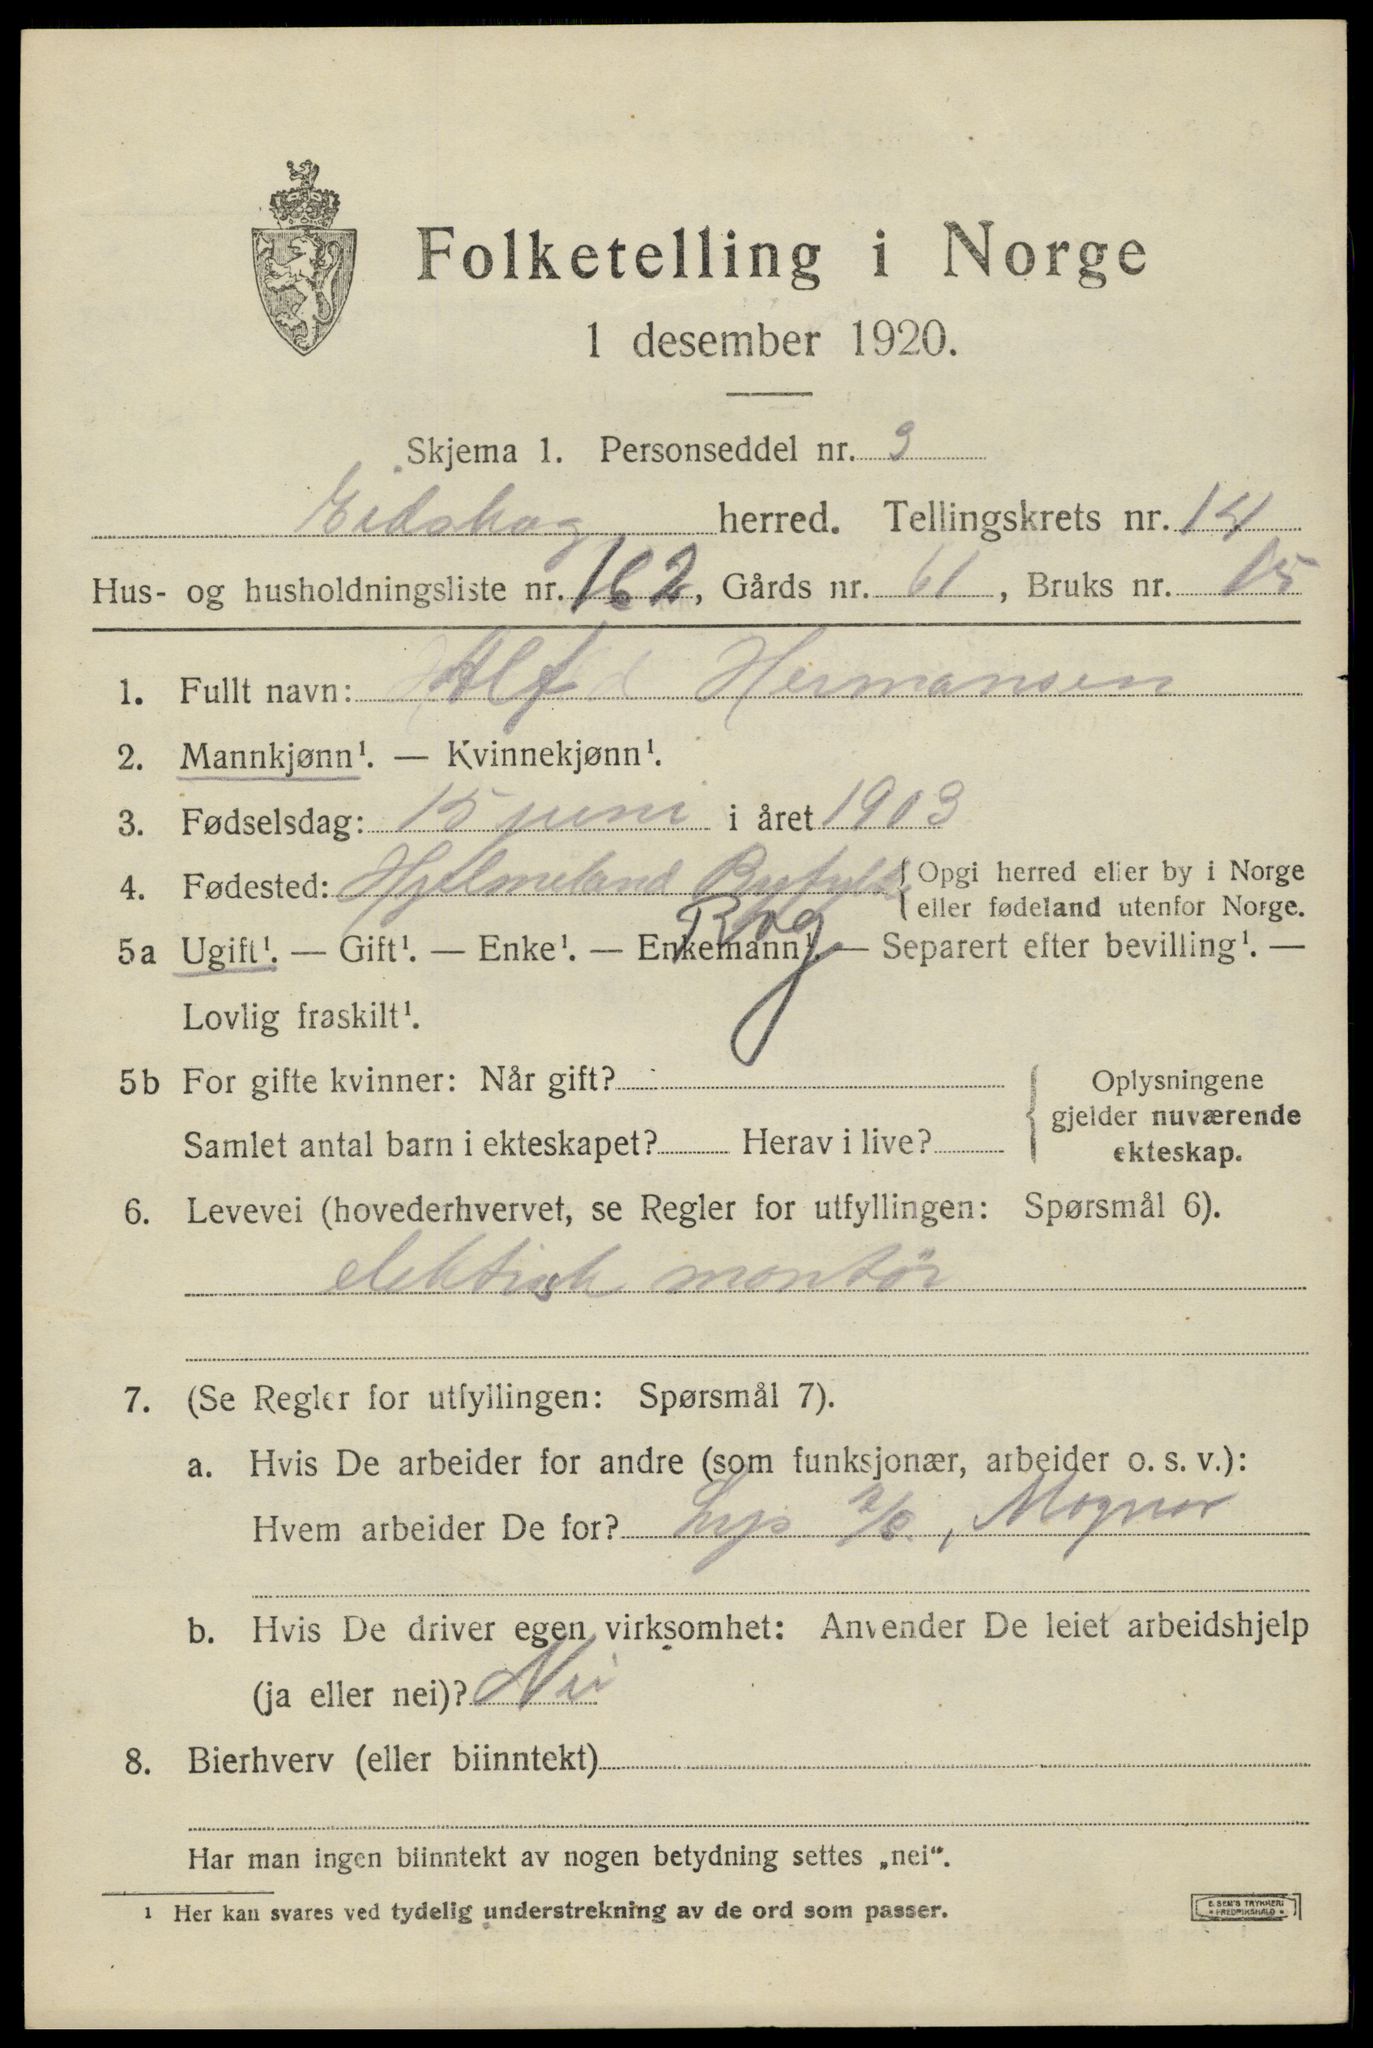 Folketelling i Norge
1 desember 1920.
Skjema 1. Personseddel nr. 3
Eidskog herred. Tellingskrets nr. 14
Hus- og husholdningsliste nr. 162, Gårds nr. 61, Bruks nr. 15
1. Fullt navn: Alf Hermansen
2. Mannkjønn¹. — Kvinnekjønn¹.
3. Fødselsdag: 15 juni i året 1903
4. Fødested: Hjelmeland { Opgi herred eller by i Norge
eller fødeland utenfor Norge.
Rog
5a Ugift¹. — Gift¹. — Enke¹. — Enkemann¹. — Separert efter bevilling¹. —
Lovlig fraskilt¹.
5b For gifte kvinner: Når gift?
Samlet antal barn i ekteskapet? Herav i live?
{ Oplysningene
gjelder nuværende
ekteskap.
6. Levevei (hovederhvervet, se Regler for utfyllingen: Spørsmål 6).
elektrisk montör
7. (Se Regler for utfyllingen: Spørsmål 7).
a. Hvis De arbeider for andre (som funksjonær, arbeider o. s. v.):
Hvem arbeider De for? Lys A/S, Magnor
b. Hvis De driver egen virksomhet: Anvender De leiet arbeidshjelp
(ja eller nei)? Nei
8. Bierhverv (eller biinntekt)
Har man ingen biinntekt av nogen betydning settes „nei“.
¹ Her kan svares ved tydelig understrekning av de ord som passer.
E. SEM'S TRYKKERI
FREDRIKSHALD